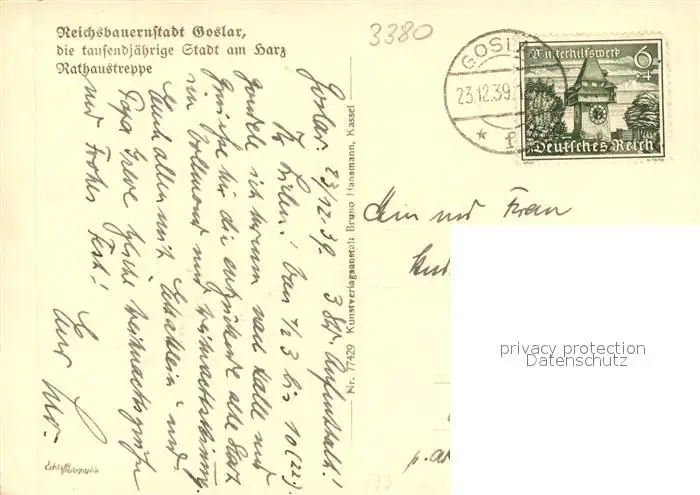 Reichsbauernstadt Goslar,
die tausendjährige Stadt am Harz
Rathaustreppe
3380
GOSL
23.12.39.
Winterhilfswerk
6+4
Deutsches Reich
Goslar. 23/12.39. 3 Std. Aufenthalt!
Ihr Lieben! Von 1/2 3 bis 10 (22).
gondele ich herum nach Halle und
genieße hier die entzückende alte Stadt
im Vollmond und Weihnachtsstimmung.
Euch allen und
Papa Weihnachtsgrüße
und Frohes Fest!
Euer
Nr. 77429 Kunstverlagsanstalt Bruno Hansmann, Kassel
Echte Photographie
und Frau
privacy protection
Datenschutz